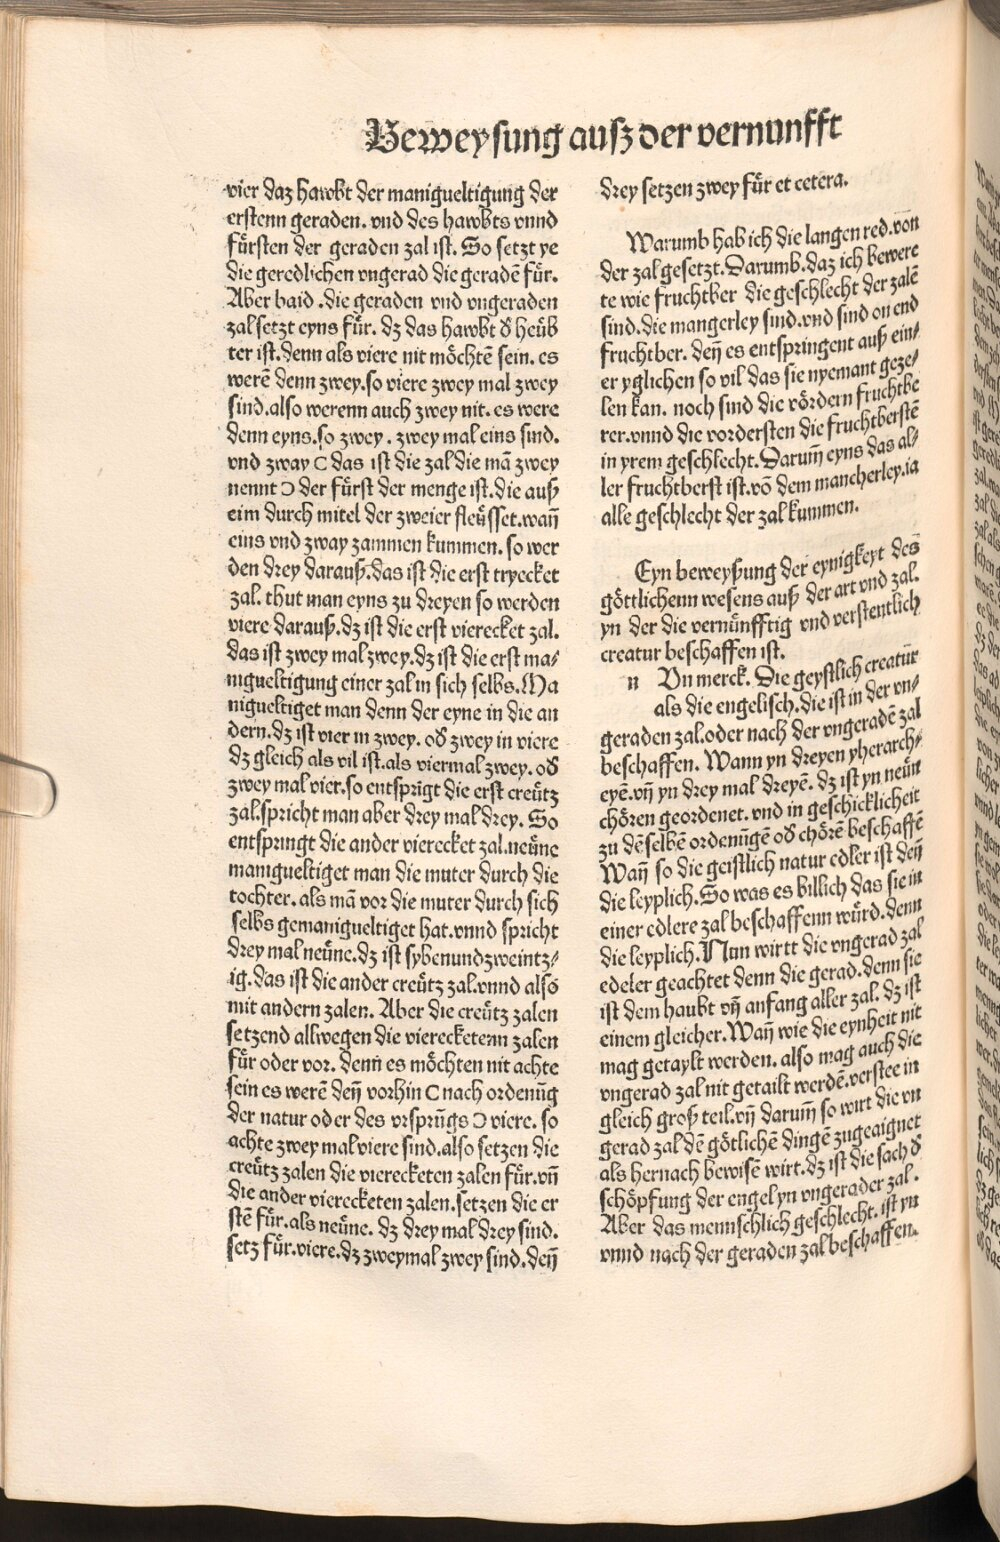 Beweysung ausz der vernunfft
vier daz hawbt der manigueltigung der
erstenn geraden. vnd des hawbts vnnd
fürsten der geraden zal ist. So setzt ye
die geredlichen vngerad die geradē für.
Aber baid .die geraden vnd vngeraden
zal setzt eyns für. dz das hawbt đ heüb
ter ist. denn als viere nit möchtē sein. es
werē denn zwey. so viere zwey mal zwey
sind. also werenn auch zwey nit. es were
denn eyns. so zwey . zwey mal eins sind.
vnd zway C das ist die zal die mā zwey
nennt Ɔ der fürst der menge ist. die auß
eim durch mitel der zweier fleüsset. wañ
eins vnd zway zammen kummen. so wer
den drey darauß. das ist die erst tryecket
zal. thut man eyns zu dreyen so werden
viere darauß. dz ist die erst vierecket zal.
das ist zwey mal zwey. dz ist die erst ma⸗
nigueltigung einer zal in sich selbs. Ma
nigueltiget man denn der eyne in die an
dern. dz ist vier in zwey. ođ zwey in viere
dz gleich als vil ist. als viermal zwey. ođ
zwey mal vier. so entsprigt die erst creütz
zal. spricht man aber drey mal drey. So
entspringt die ander vierecket zal. neüne
manigueltiget man die muter durch die
tochter. als mā vor die muter durch sich
selbs gemanigueltiget hat. vnnd spricht
drey mal neüne. dz ist sybenundzweintz⸗
ig. das ist die ander creütz zal. vnnd also
mit andern zalen. Aber die creütz zalen
setzend allwegen die vierecketenn zalen
für oder vor. denn es möchten nit achte
sein es werē deñ vorhin C nach ordenūg
der natur oder des vrsprūgs Ɔ viere. so
achte zwey mal viere sind. also setzen die
creütz zalen die vierecketen zalen für. vñ
die ander vierecketen zalen. setzen die er
stē für. als neüne. dz drey mal drey sind.
setz für. viere. dz zweymal zwey sind. deñ
drey setzen zwey für et cetera.
Warumb hab ich die langen red. von
der zal gesetzt. Darumb. daz ich bewere
te wie fruchtber die geschlecht der zalē
sind. die mangerley sind. vnd sind on end
fruchtber. deñ es entspringent auß ein⸗
er yglichen so vil das sie nyemant geze⸗
len kan. noch sind die vördern fruchtbe
rer. vnnd die vordersten die fruchtberstē
in yrem geschlecht. Darum̄ eyns das al⸗
ler fruchtberst ist. vō dem mancherley. ia
alle geschlecht der zal kummen.
Eyn beweyßung der eynigkeyt des
göttlichenn wesens auß der art vnd zal.
yn der die vernünfftig vnd verstentlich
creatur beschaffen ist.
n Vn merck. Die geystlich creatur
als die engelisch. die ist in der vn⸗
geraden zal. oder nach der vngeradē zal
beschaffen. Wann yn dreyen yherarch⸗
eyē. vñ yn drey mal dreyē. dz ist yn neün
chören geordenet. vnd in geschicklicheit
zu dē selbē ordenūgē ođ chörē beschaffē
Wañ so die geistlich natur edler ist deñ
die leyplich. So was es billich das sie in
einer edlere zal beschaffenn würd. denn
die leyplich. Nun wirtt die vngerad zal
edeler geachtet denn die gerad. denn sie
ist dem haubt vñ anfang aller zal. dz ist
einem gleicher. Wañ wie die eynheit nit
mag getaylt werden. also mag auch die
vngerad zal nit getailt werdē. verstee in
gleich groß teil. vñ darum̄ so wirt die vn
gerad zal dē götlichē dingē zugeaignet
als hernach bewisē wirt. dz ist die sach đ
schöpfung der engel yn vngerader zal .
Aber das mennschlich geschlecht. ist yn
vnnd nach der geraden zal beschaffen.